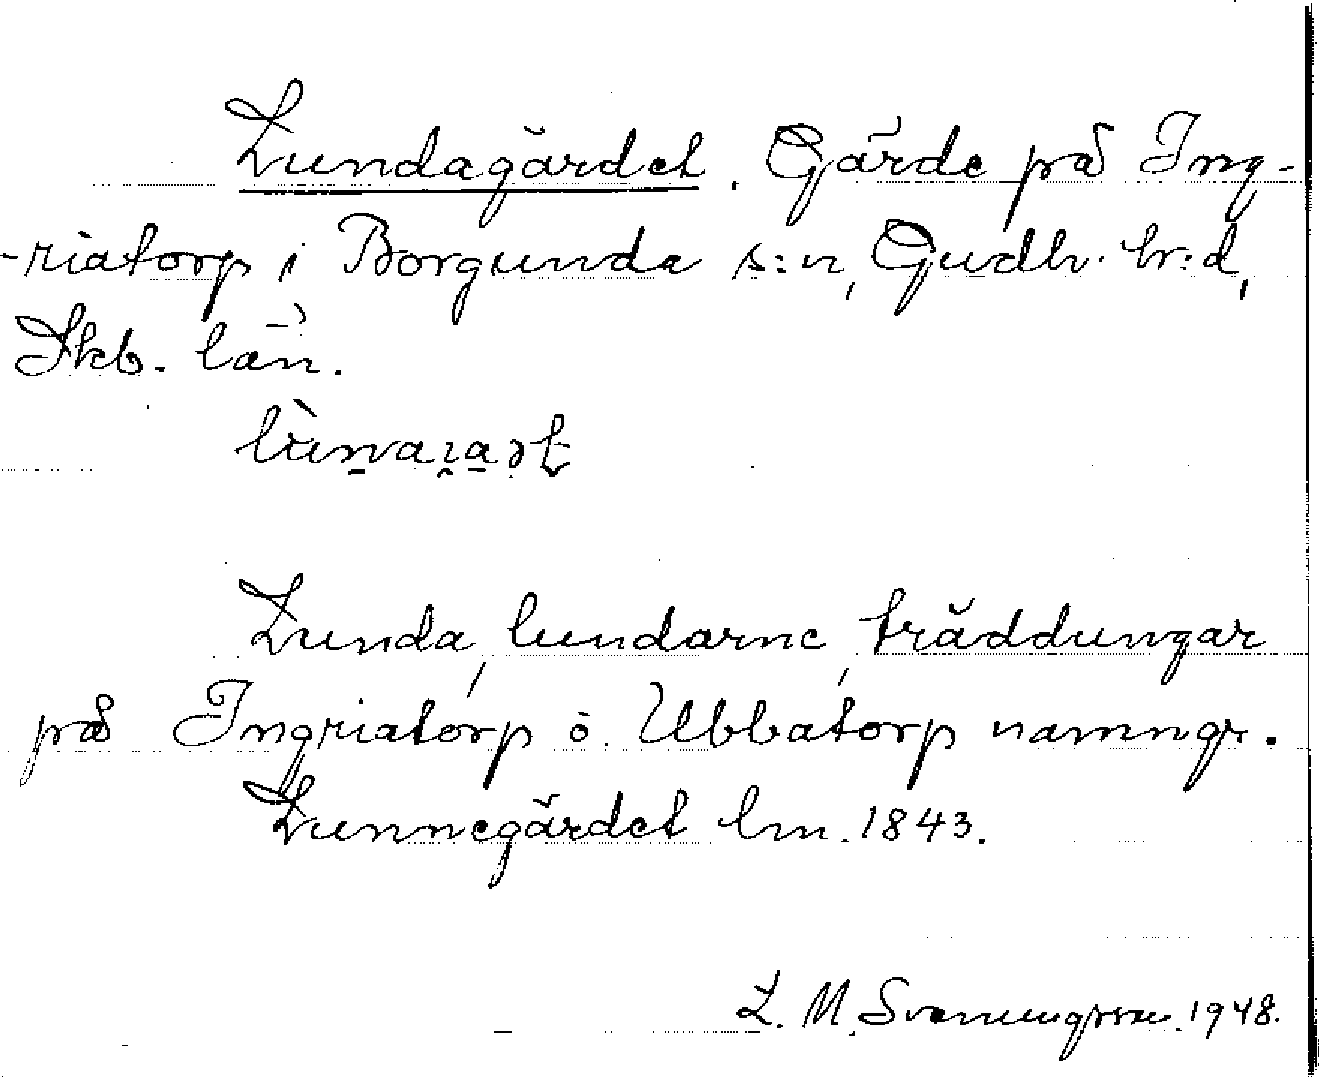 Lundagärdet. Gärde på Ing-
-riatorp i Borgunda s:n, Gudh. hr:d,
Skb. län.
Lunda, lundarne, träddungar
på Ingriatorp o. Ubbatorp namngr.
Lunnegärdet lm. 1843.
L. M. Svenungsson. 1948.